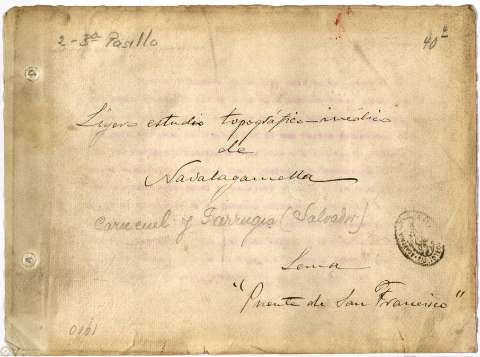 2-3ª Pasillo
40
Ligero estudio topográfico-médico
de
Navalagamella
Carncuel y Farrugia (Salvador)
Lema
"Puente de San Francisco"